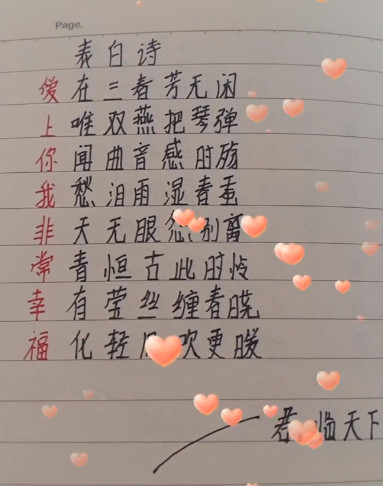 Page.
表白诗
爱在三春芳无闲
上唯双燕把琴弹
你闻曲音感时殇
我愁泪雨湿春蚕
非天无眼 别离
常青恒古此时怜
幸有莹丝缠春晓
福化轻 吹更暖
君临天下